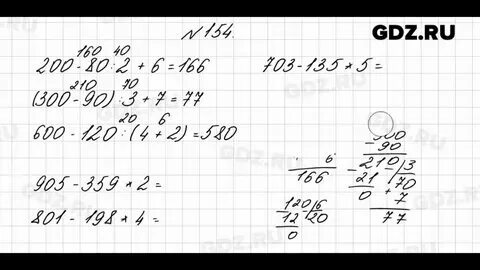 GDZ.RU
№154.
160 40
200 - 80 : 2 + 6 = 166
210 70
(300 - 90) : 3 + 7 = 77
20 6
600 - 120 : (4 + 2) = 580
905 - 359 * 2 =
801 - 198 * 4 =
703 - 135 * 5 =
6
166
120 6
12 20
0
- 90
- 210 3
21 70
0 + 7
77